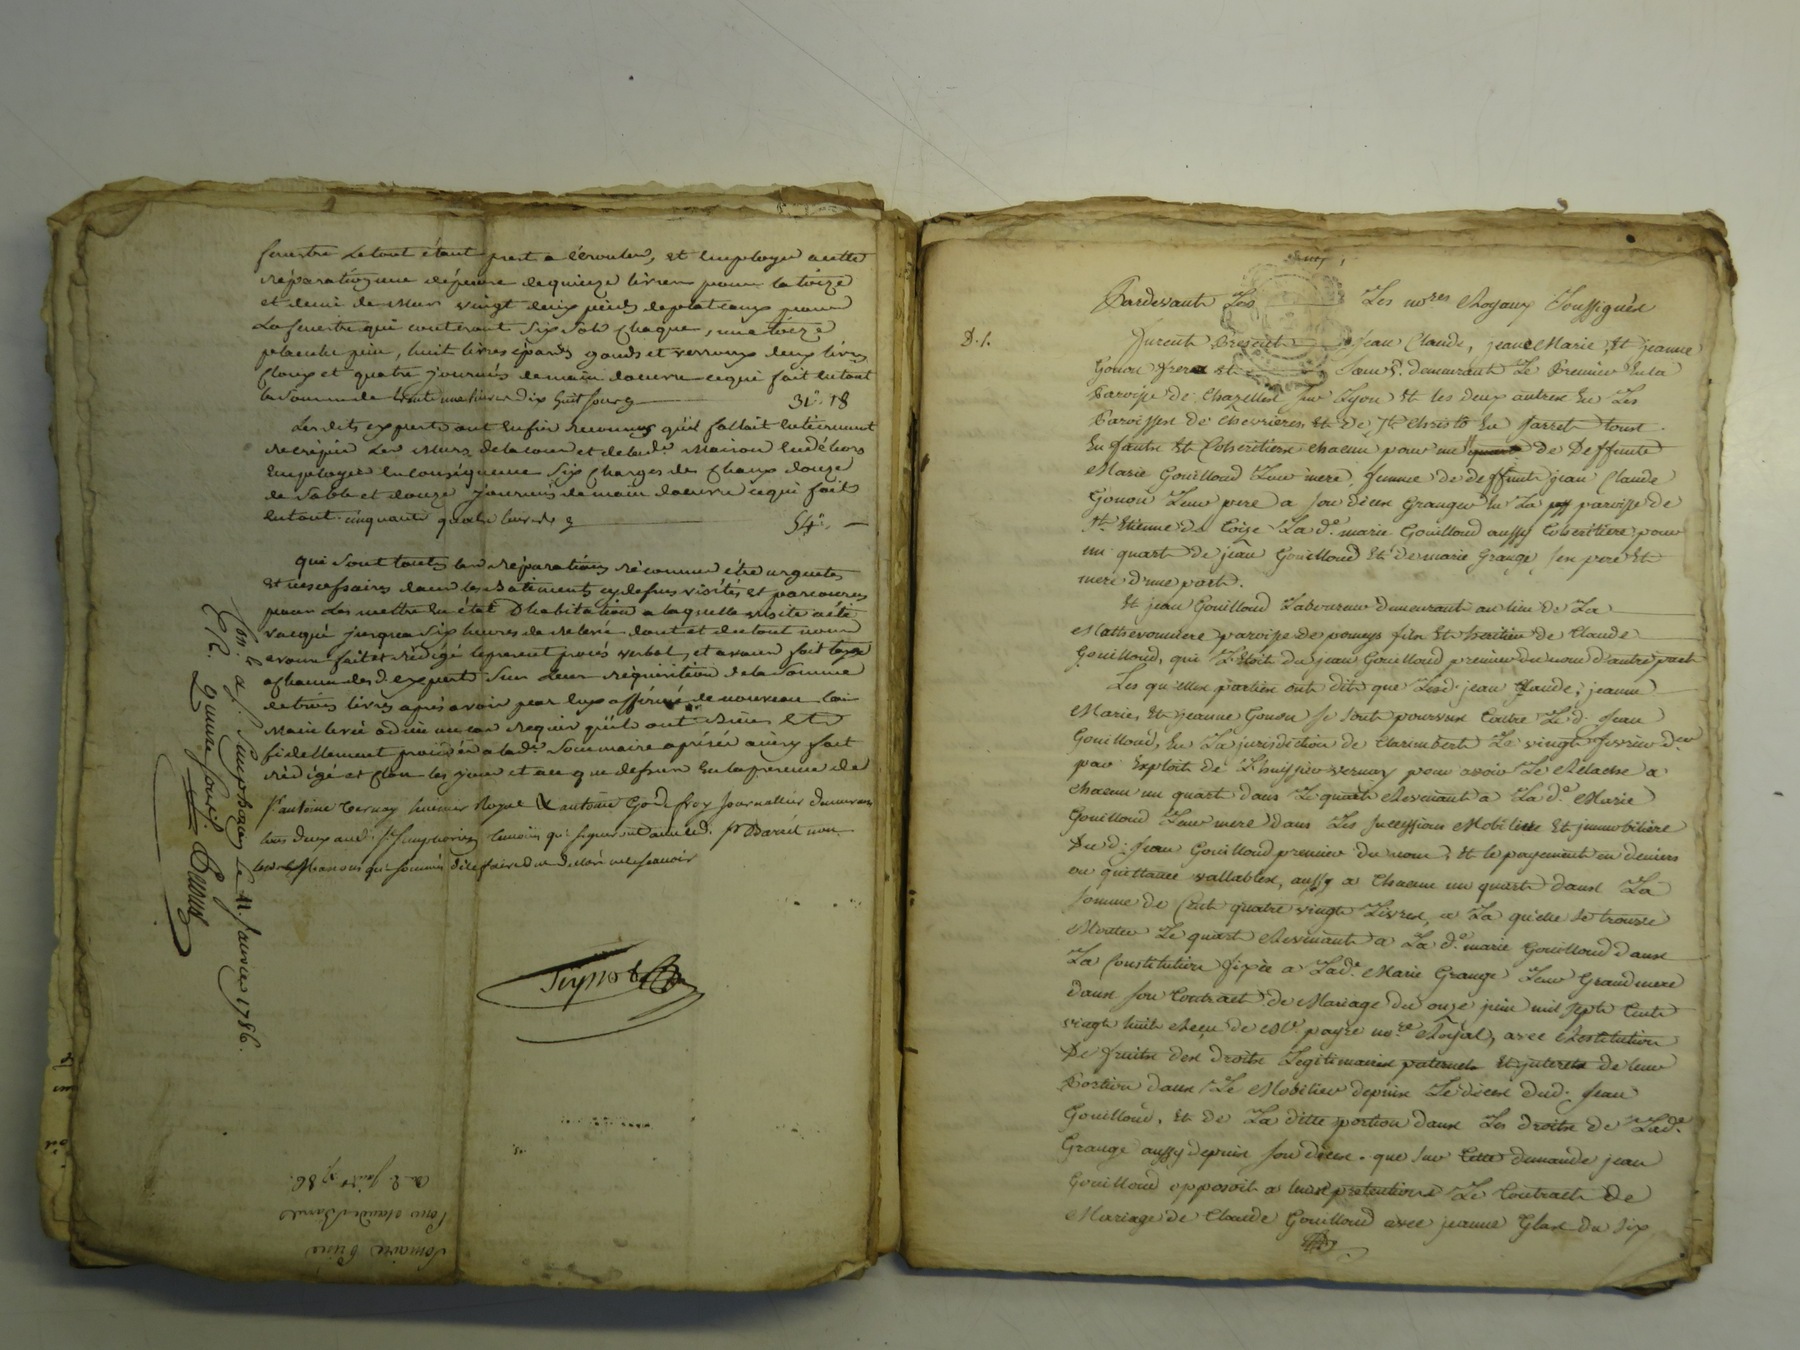 fenestre le tout étant prest a s'ecrouler, et employer a cette
réparation une dépense de quinze livres pour la toize
et demi de mur vingt deux pieds de plateaux pour
la fenestre qui couteront six sols chaque, une toize
planche pin, huit livres éparres gonds et verroux deux livres
cloux et quatre journées de main doeuvre ce qui fait en tout
la somme de trente une livres dix huit sous 31# 18
Les dits experts ont enfin reconnus qu'il fallait entierement
recrépir les murs de la cour et de lad. maison en déhors
employer en conséquence six charges de chaux douze
de sable et douze journées de main doeuvre ce qui fait
en tout cinquante quatre livres 54# —
qui sont toutes les réparations réconnues être urgentes
et necessaires dans les batiments cy dessus visités et parcourus
pour les mettre en état d'habitation a laquelle visite a été
vacqué jusqua six heures de relevée dont et du tout nous
avons fait et rédigé le present procés verbal, et avons fait taxe
a chacun des d. experts sur leur réquisition de la somme
de trois livres aprés avoir par eux affirmé de nouveau la
main levée a dieu au cas requis qu'ils ont bien et
fidellement procédé a lad. sommaire aprisée ainsy fait
rédigé et clos les jour et an que dessus en la presence de
sr antoine Vernay huissier Royal & antoine Godefroy Journallier demeurans
tous deux aud. St Simphorien temoins qui signeront avec led. sr Barret non
les d. Massons qui sommés de le faire ont declaré ne scavoir
Teyssot
Con. le a St Simphorien le 11. janvier 1786.
R. quinze sous.
au 2. janv. 1786.
pour claude Barret
Somaire Prise
Pardevant Les Les nores Royaux Soussignés
D. 1.
Furent Presents Jean Claude, jeanMarie, Et jeanne
Gonon frere et Sœur S. demeurants Le Premier En la
Paroisse de Chazelles sur Lyon Et les deux autres En Les
Paroisses de Chevrieres, Et de St Christo En Jarret tous
Enfants Et Coheritiers chacun pour un quart de Deffunte
Marie Gouilloud Leur mere, femme de deffunt jean Claude
Gonon Leur pere a son dicex Granger En La paroisse de
St Etienne de Coize La de. marie Gouilloud aussy Coheritiere pour
un quart de jean Gouilloud Et de marie Grange, ses pere Et
mere d'une part.
Et jean Gouilloud Laboureur demeurant au lieu de La
Mathevonniere paroisse de pomeys fils Et heritier de Claude
Gouilloud, qui L'Etoit du jean Gouilloud premier du nom d'autre part
Les qu'elles parties ont dit que Lesd. jean Claude, jeanne
Marie, Et jeanne Gonon se sont pourvus Contre Le d. Jean
Gouilloud, En La jurisdiction de Clarimbert Le vingt fevrier der
par Exploit de L'huissier vernay pour avoir Le Relache a
chacun un quart dans Le quart Revenant a La de. Marie
Gouilloud Leur mere dans Les successions Mobiliere Et jmmobiliere
Du d. Jean Gouilloud premier du nom, Et le payement en deniers
ou quittance vallables, aussy a Chacun un quart dans La
somme de Cent quatre vingt Livres, a La qu'elle se trouve
Monter Le quart Revenant a La de. marie Gouilloud dans
La Constitution fixée a Lade. Marie Grange Leur Grand mere
dans son Contract de Mariage du onze juin mil sept Cent
vingt huit Receu de Me. payre nore Royal, avec Restitution
De fruits des droits Legitimaires paternels Et jnterets de leur
Portion dans Le Mobilier depuis Le dicex dud. Jean
Gouilloud, Et de La ditte portion dans Les droits de Lade.
Grange aussy depuis son dicex. que sur Cette demande jean
Gouilloud opposoit a leurs pretentions Le Contract de
Mariage de Claude Gouilloud avec jeanne Glas du six